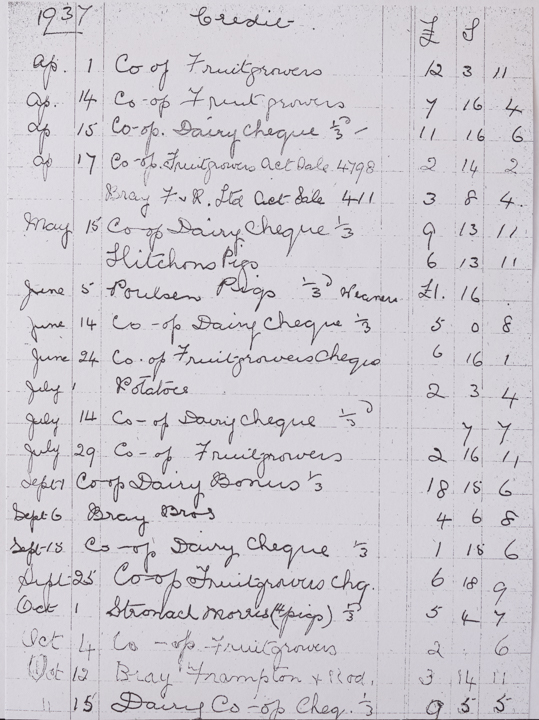 1937 Credit. £ S
Ap. 1 Co of Fruitgrowers 12 3 11
Ap. 14 Co-op Fruit growers 7 16 4
Ap 15 Co-op. Dairy Cheque 1/3 - 11 16 6
Ap 17 Co-op. Fruitgrowers Act Sale 4798 2 14 2
Bray F & R. Ltd Act Sale 411 3 8 4.
May 15 Co-op Dairy Cheque 1/3 9 13 11
Hitchons Pigs 6 13 11
June 5 Poulsen Pigs 1/3 Weaners £1. 16 .
June 14 Co-op Dairy Cheque 1/3 5 0 8
June 24 Co. of Fruitgrowers Cheque 6 16 1
July 1 Potatoes 2 3 4
July 14 Co-op Dairy Cheque 1/3 7 7
July 29 Co-of Fruitgrowers 2 16 11
Sept-1 Co-op Dairy Bonus 1/3 18 15 6
Sept 6 Bray Bros 4 6 8
Sept-15 Co-op Dairy Cheque 1/3 1 15 6
Sept-25 Co-op Fruitgrowers Chq. 6 18 9
Oct 1 Stronach Morris (4 pigs) 1/3 5 4 7
Oct 4 Co-op Fruitgrowers 2 . 6
Oct 12 Bray Frampton & Rod. 3 14 11
" 15 Dairy Co-op Cheq. 1/3 9 5 5